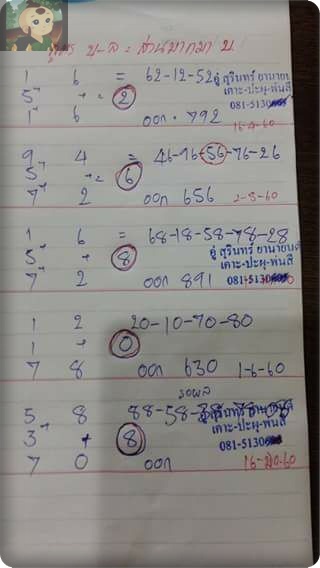 สูตร บ-ล = ส่วนมากมา บ
1 6 = 62-12-52
5+ += 2
1+ 6 ออก . 792
อู่ สุรินทร์ ยานยนต์
เคาะ-ปะผุ-พ่นสี
081-5130
9 4 = 46-96-56-76-26
5+ += 6
7 2 ออก 656 2-5-60
1 6 = 68-18-58-78-28
5+ + 8
7 2 ออก 891
อู่ สุรินทร์ ยานยนต์
เคาะ-ปะผุ-พ่นสี
081-5130
1 2 20-10-70-80
1 + 0
7 8 ออก 630 1-6-60
รอผล
5 8 88-58-38
3+ + 8
7 0 ออก 16-มิย-60
เคาะ-ปะผุ-พ่นสี
081-5130